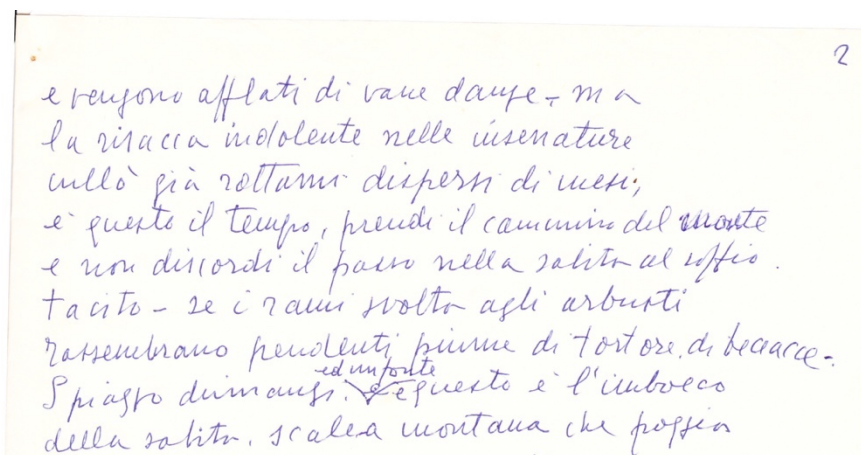 2
e vengono afflati di vane danze - ma
la risacca indolente nelle insenature
cullò già rottami dispersi di mesi,
è questo il tempo, prendi il cammino del monte
e non discordi il passo nella salita al soffio.
tacito - se i rami svolta agli arbusti
rassembrano pendenti piume di tortore, di beccacce.
Spiazzo dinnanzi. ed un fonte questo è l'imbocco
della salita. scalea montana che poggia